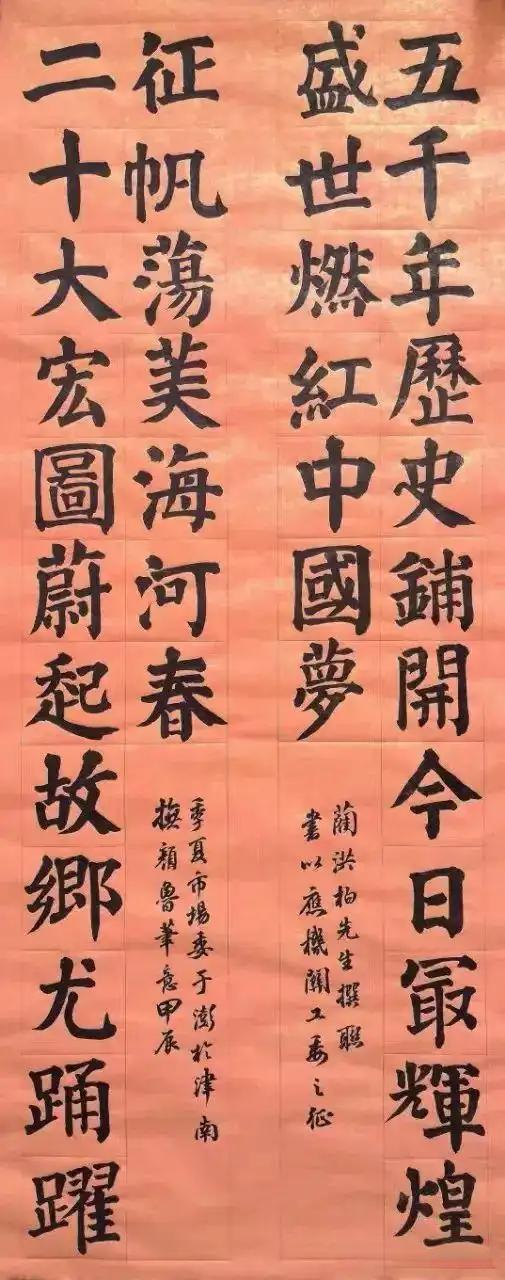 五千年歷史鋪開今日冣輝煌
盛世燃紅中國夢
藺洪柏先生撰聯
書以應機關工委之征
二十大宏圖蔚起故鄉尤踴躍
征帆蕩美海河春
橅顏魯筆意甲辰
季夏市場委于澎於津南